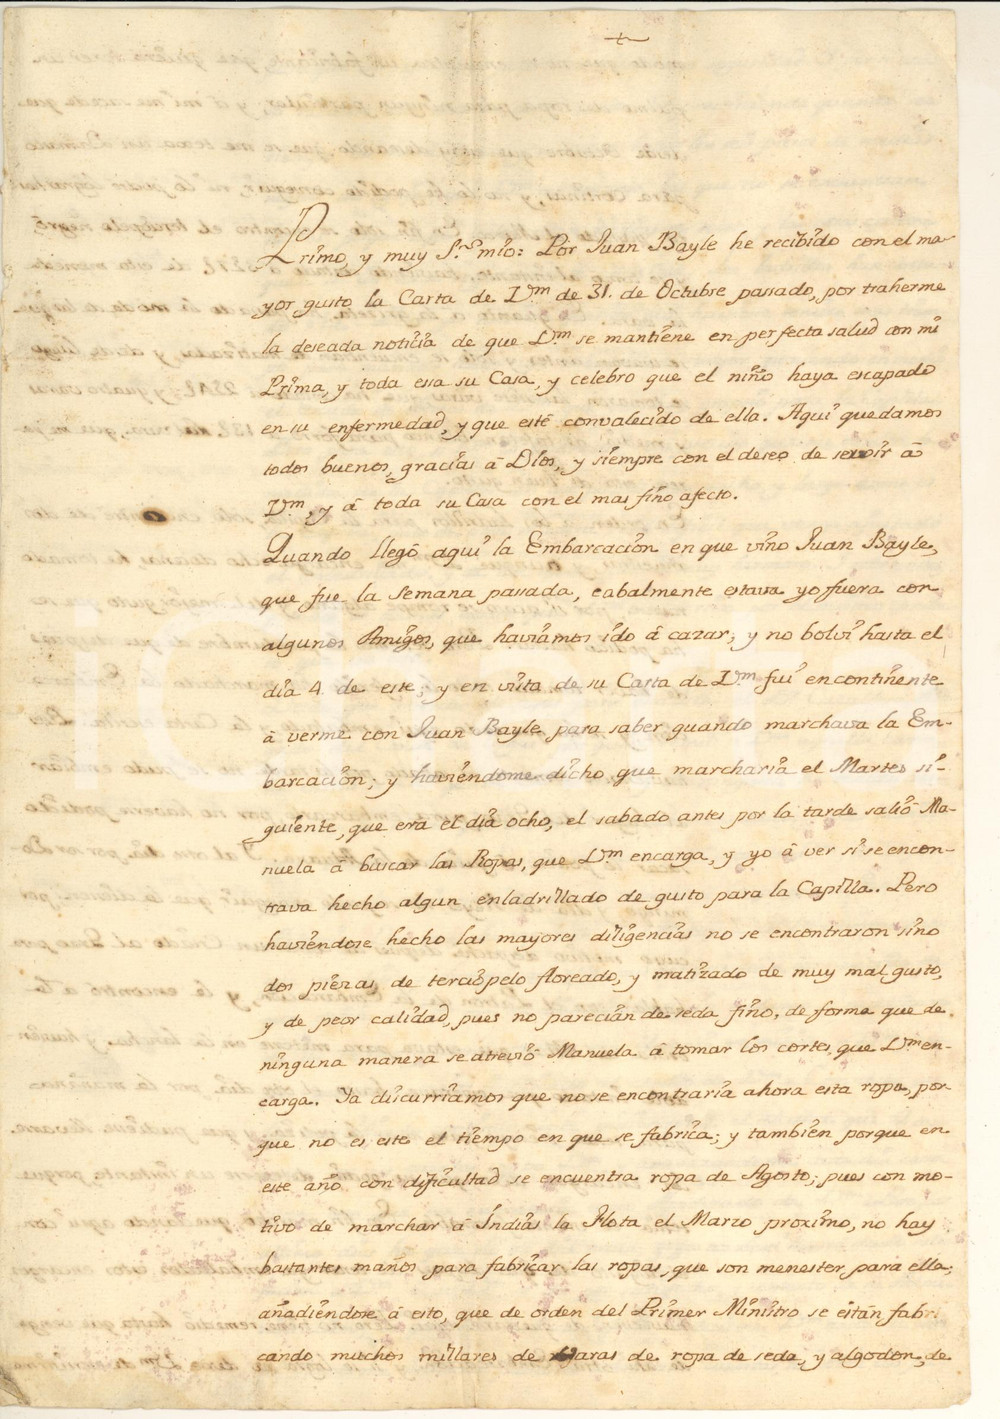 +
Primo, y muy S.r mio: Por Juan Bayle he recibido con el ma-
yor gusto la Carta de Vm de 31. de Octubre passado, por traherme
la deseada noticia de que Vm se mantiene en perfecta salud con mi
Prima, y toda essa su Casa, y celebro que el niño haya escapado
en su enfermedad, y que esté convalecido de ella. Aqui quedamos
todos buenos, gracias â Dios, y siempre con el deseo de servir â
Vm, y â toda su Casa con el mas fino afecto.
Quando llegó aqui la Embarcación en que vino Juan Bayle,
que fue la semana passada, cabalmente estava yo fuera con
algunos Amigos, que haviamos ido â cazar; y no bolvi hasta el
dia 4. de este; y en vista de su Carta de Vm fui encontinente
â verme con Juan Bayle para saber quando marchava la Em-
barcación; y haviendome dicho que marcharia el Martes si-
guiente, que era el dia ocho, el sabado antes por la tarde salió Ma-
nuela â buscar las Ropas, que Vm encarga, y yo â ver si se encon-
trava hecho algun enladrillado de gusto para la Capilla. Pero
haviendose hecho las mayores diligencias no se encontraron sino
dos piezas de terciopelo floreado, y matizado de muy mal gusto,
y de peor calidad, pues no parecian de seda fino, de forma que de
ninguna manera se atrevió Manuela â tomar los cortes que Vm en-
carga. Ya discurriamos que no se encontraria ahora esta ropa, por-
que no es este el tiempo en que se fabrica; y tambien porque en
este año con dificultad se encuentra ropa de Agosto; pues con mo-
tivo de marchar â Indias la Flota el Marzo proximo, no hay
bastantes manos para fabricar las ropas, que son menester para ella,
añadiendose â esto, que de orden del Primer Ministro se están fabri
cando muchos millares de varas de ropa de seda, y algodon, de